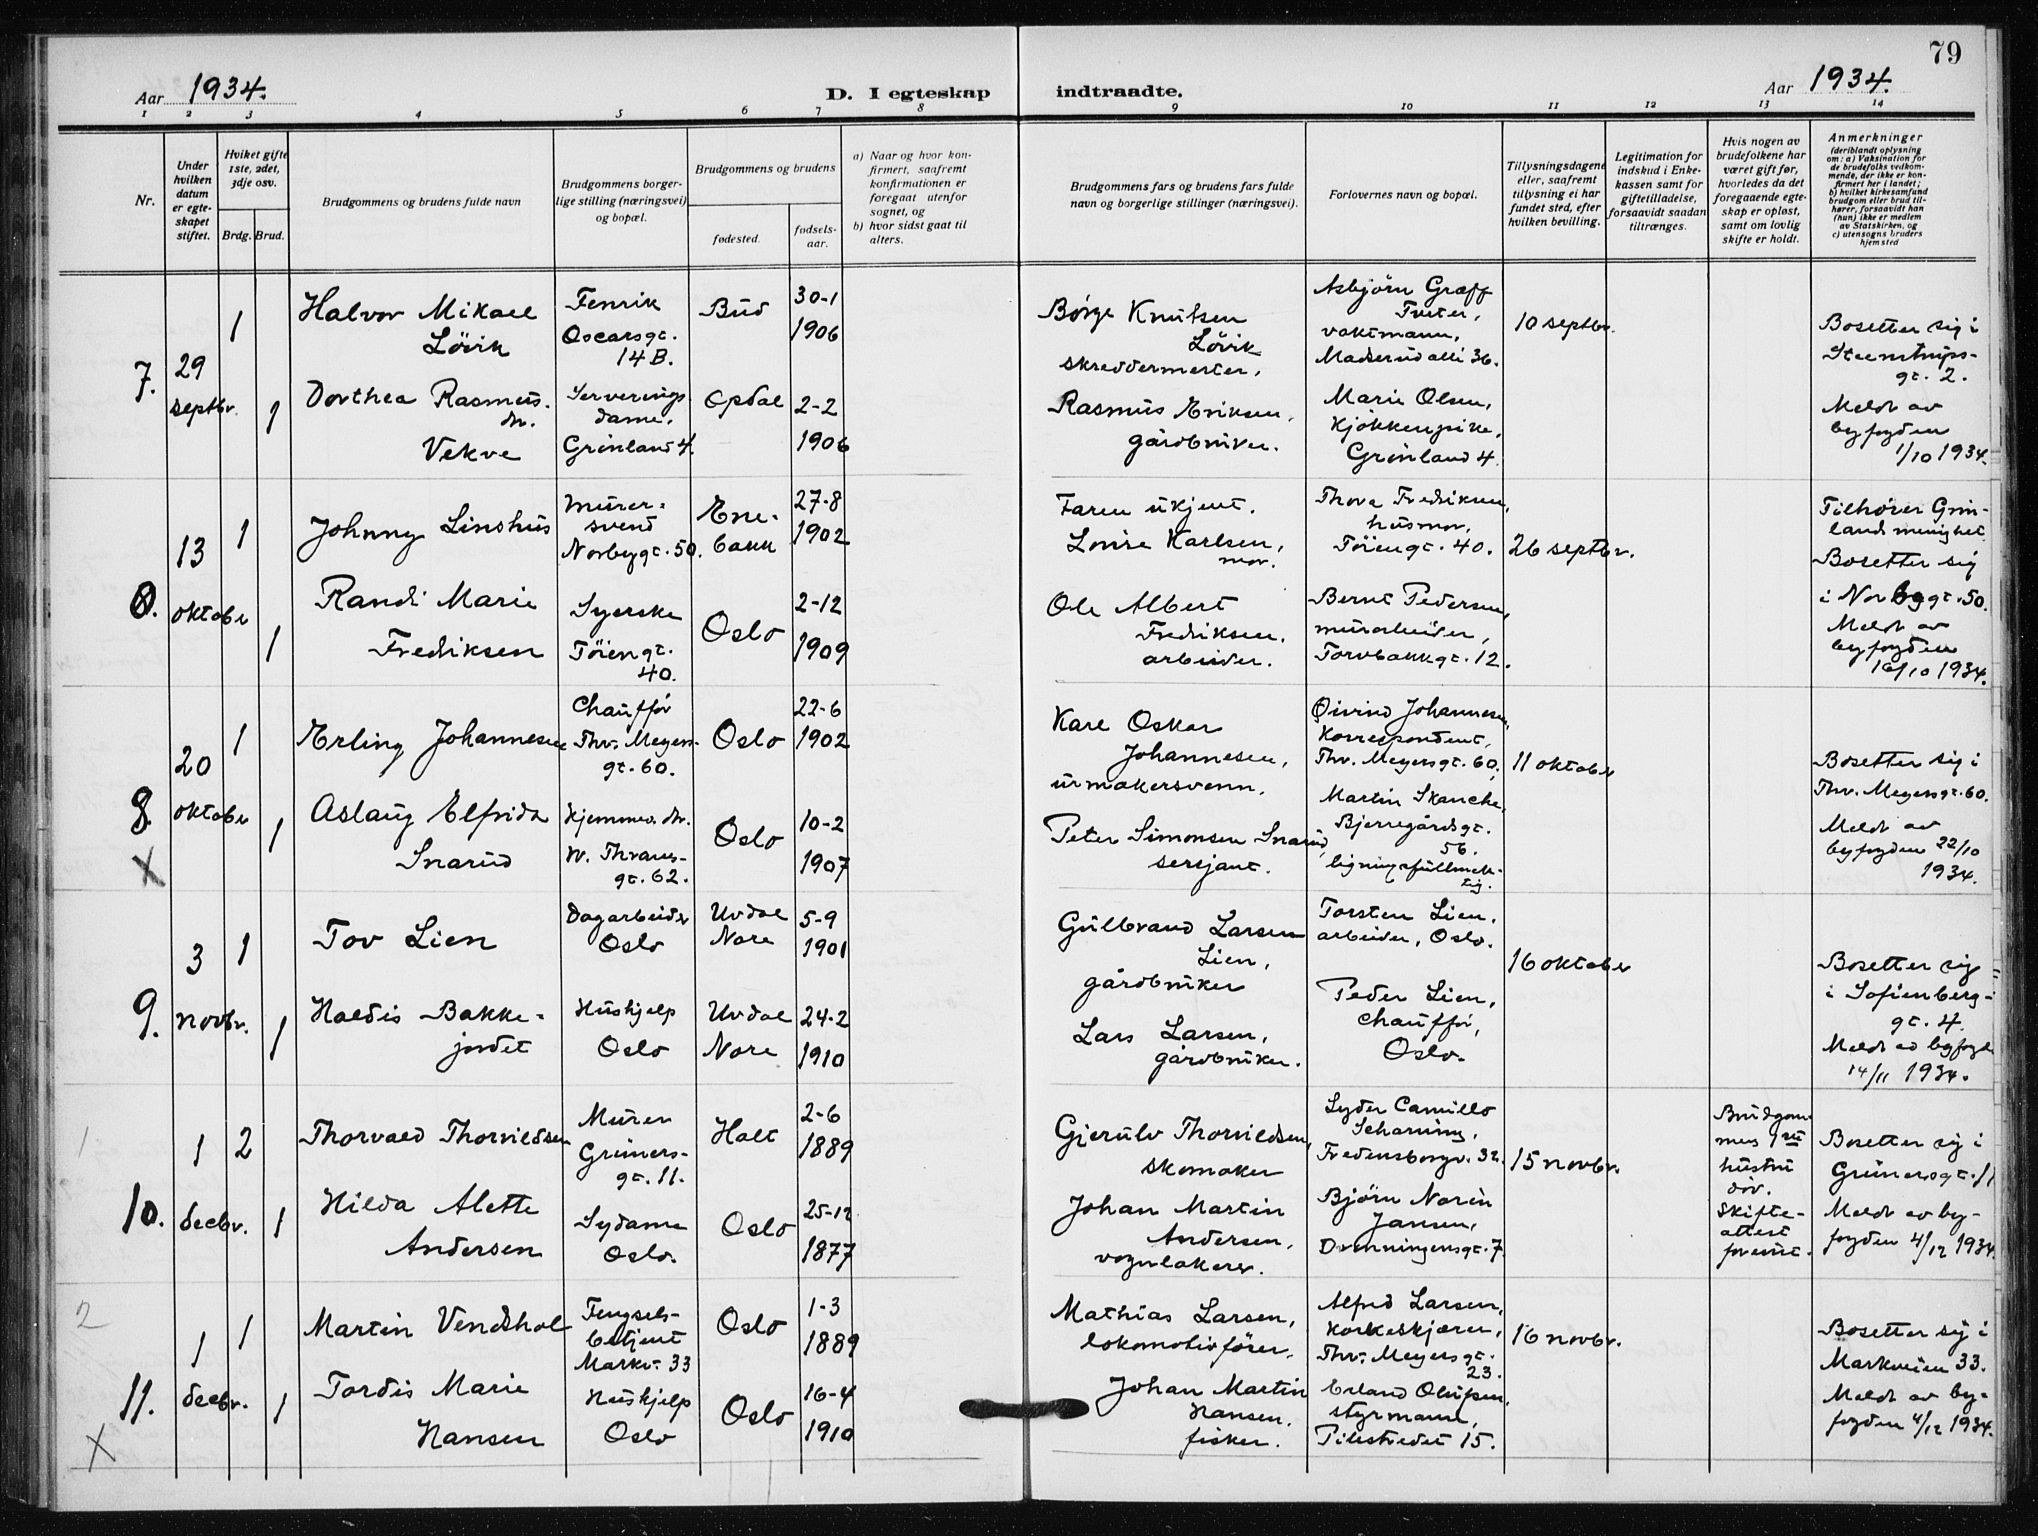 79
Aar 1934.
D. I egteskap indtraadte.
Aar 1934.
1 2 3 4 5 6 7 8 9 10 11 12 13 14
Nr.
Under
hvilken
datum
er egte-
skapet
stiftet.
Hviket gifte
1ste, 2det,
3dje osv.
Brdg. Brud.
Brudgommens og brudens fulde navn
Brudgommens borger-
lige stilling (næringsvei)
og bopæl.
Brudgommens og brudens
fødested.
fødsels-
aar.
a) Naar og hvor kon-
firmert, saafremt
konfirmationen er
foregaat utenfor
sognet, og
b) hvor sidst gaat til
alters.
Brudgommens fars og brudens fars fulde
navn og borgerlige stillinger (næringsvei).
Forlovernes navn og bopæl.
Tillysningsdagene
eller, saafremt
tillysning ei har
fundet sted, efter
hvilken bevilling.
Legitimation for
indskud i Enke-
kassen samt for
giftetilladelse,
forsaavidt saadan
tiltrænges.
Hvis nogen av
brudefolkene har
været gift før,
hvorledes da det
foregaaende egte-
skap er opløst,
samt om lovlig
skifte er holdt.
Anmerkninger
(deriblandt oplysning
om: a) Vaksination for
de brudefolks vedkom-
mende, der ikke er kon-
firmert her i landet;
b) hvilket kirkesamfund
brudgom eller brud til-
hører, forsaavidt han
(hun) ikke er medlem
av Statskirken, og
c) utensogns bruders
hjemsted
7.
29
septbr.
1
1
Halvor Mikael
Lövik
Fenrik
Oscarsgt.
14 B.
Bud
30-1
1906
Børge Knutsen
Lövik
skreddermester,
Asbjörn Graff
Tveter,
vaktmann,
Madserud alle 36.
10 septbr.
Bosetter sig i
Steenstrups-
gt. 2.
Dorthea Rasmus.
dtr.
Vekve
Serverings
dame.
Grönland 4.
Opdal
2-2
1906
Rasmus Eriksen,
gårdbruker.
Marie Olsen,
kjökkenpike,
Grönland 4.
Meldt av
byfogden
1/10 1934.
13
oktober
1
1
Johnny Linshus
Murer-
svend
Norbygt. 50.
Ene-
bakk
27-8
1902
Faren ukjent.
Lovise Karlsen,
mor.
Thora Fredriksen,
husmor,
Töiengt. 40.
26 septbr.
Tilhörer Grön-
land menighet
Bosetter sig
i Norbygt. 50.
Randi Marie
Fredriksen
Syerske
Töiengt.
40.
Oslo
2-12
1909
Ole Albert
Fredriksen,
arbeider.
Bernt Pedersen,
murarbeider,
Torvbakkgt. 12.
Meldt av
byfogden
16/10 1934.
8.
X
20
oktober
1
1
Erling Johannesen
Chaufför
Thv. Meyers-
gt. 60.
Oslo
22-6
1902
Kare Oskar
Johannesen,
urmakersvenn.
Öivind Johannesen,
korrespondent,
Thv. Meyersgt. 60.
11 oktober
Bosetter sig i
Thv. Meyersgt. 60.
Aslaug Elfrida
Snarud
Hjemmev. dtr.
W. Thranes-
gt. 62.
Oslo
10-2
1907
Peter Simonsen Snarud,
sersjant.
Martin Skanche,
Bjerregårdsgt.
56.
ligningsfullmek-
tig.
Meldt av
byfogden 22/10
1934.
9.
3
novbr.
1
1
Tov Lien
Dagarbeider
Oslo
Uvdal
Nore
5-9
1901
Gulbrand Larsen
Lien,
gårdbruker
Torsten Lien,
arbeider, Oslo.
16 oktober
Bosetter sig
i Sofienberg-
gt. 4.
Haldis Bakke-
jordet
Hushjelp
Oslo
Uvdal
Nore
24-2
1910
Lars Larsen,
gårdbruker.
Peder Lien,
chaufför,
Oslo.
Meldt av byfogd.
14/11 1934.
1
10.
1
decbr.
2
1
Thorvald Thorvildsen
Murer
Grüners-
gt. 11.
Holt
2-6
1889
Gjerulv Thorvildsen,
skomaker
Lyder Camillo
Scharning,
Fredensborgv. 32.
15 novbr.
Brudgom-
mens 1ste
hustru
död.
Skifte-
attest
forevist.
Bosetter sig i
Grünersgt. 11
Hilda Alette
Andersen
Sydame
Oslo.
Oslo
25-12
1877
Johan Martin
Andersen,
vognlakerer.
Björn Narin
Jansen,
Dronningensgt. 7.
Meldt av by-
fogden 4/12 1934.
2
11.
X
1
decbr.
1
1
Martin Vendshol
Fengsels-
betjent
Markv. 33
Oslo
1-3
1889
Mathias Larsen,
lokomotivförer.
Alfred Larsen,
korkeskjærer,
Thv. Meyersgt.
23.
16 novbr.
Bosetter sig i
Markveien 33.
Tordis Marie
Hansen
Hushjelp
Oslo
Oslo
16-4
1910
Johan Martin
Hansen,
fisker.
Erland Olufsen,
styrmann,
Pilestredet 15.
Meldt av by-
fogden 4/12 1934.